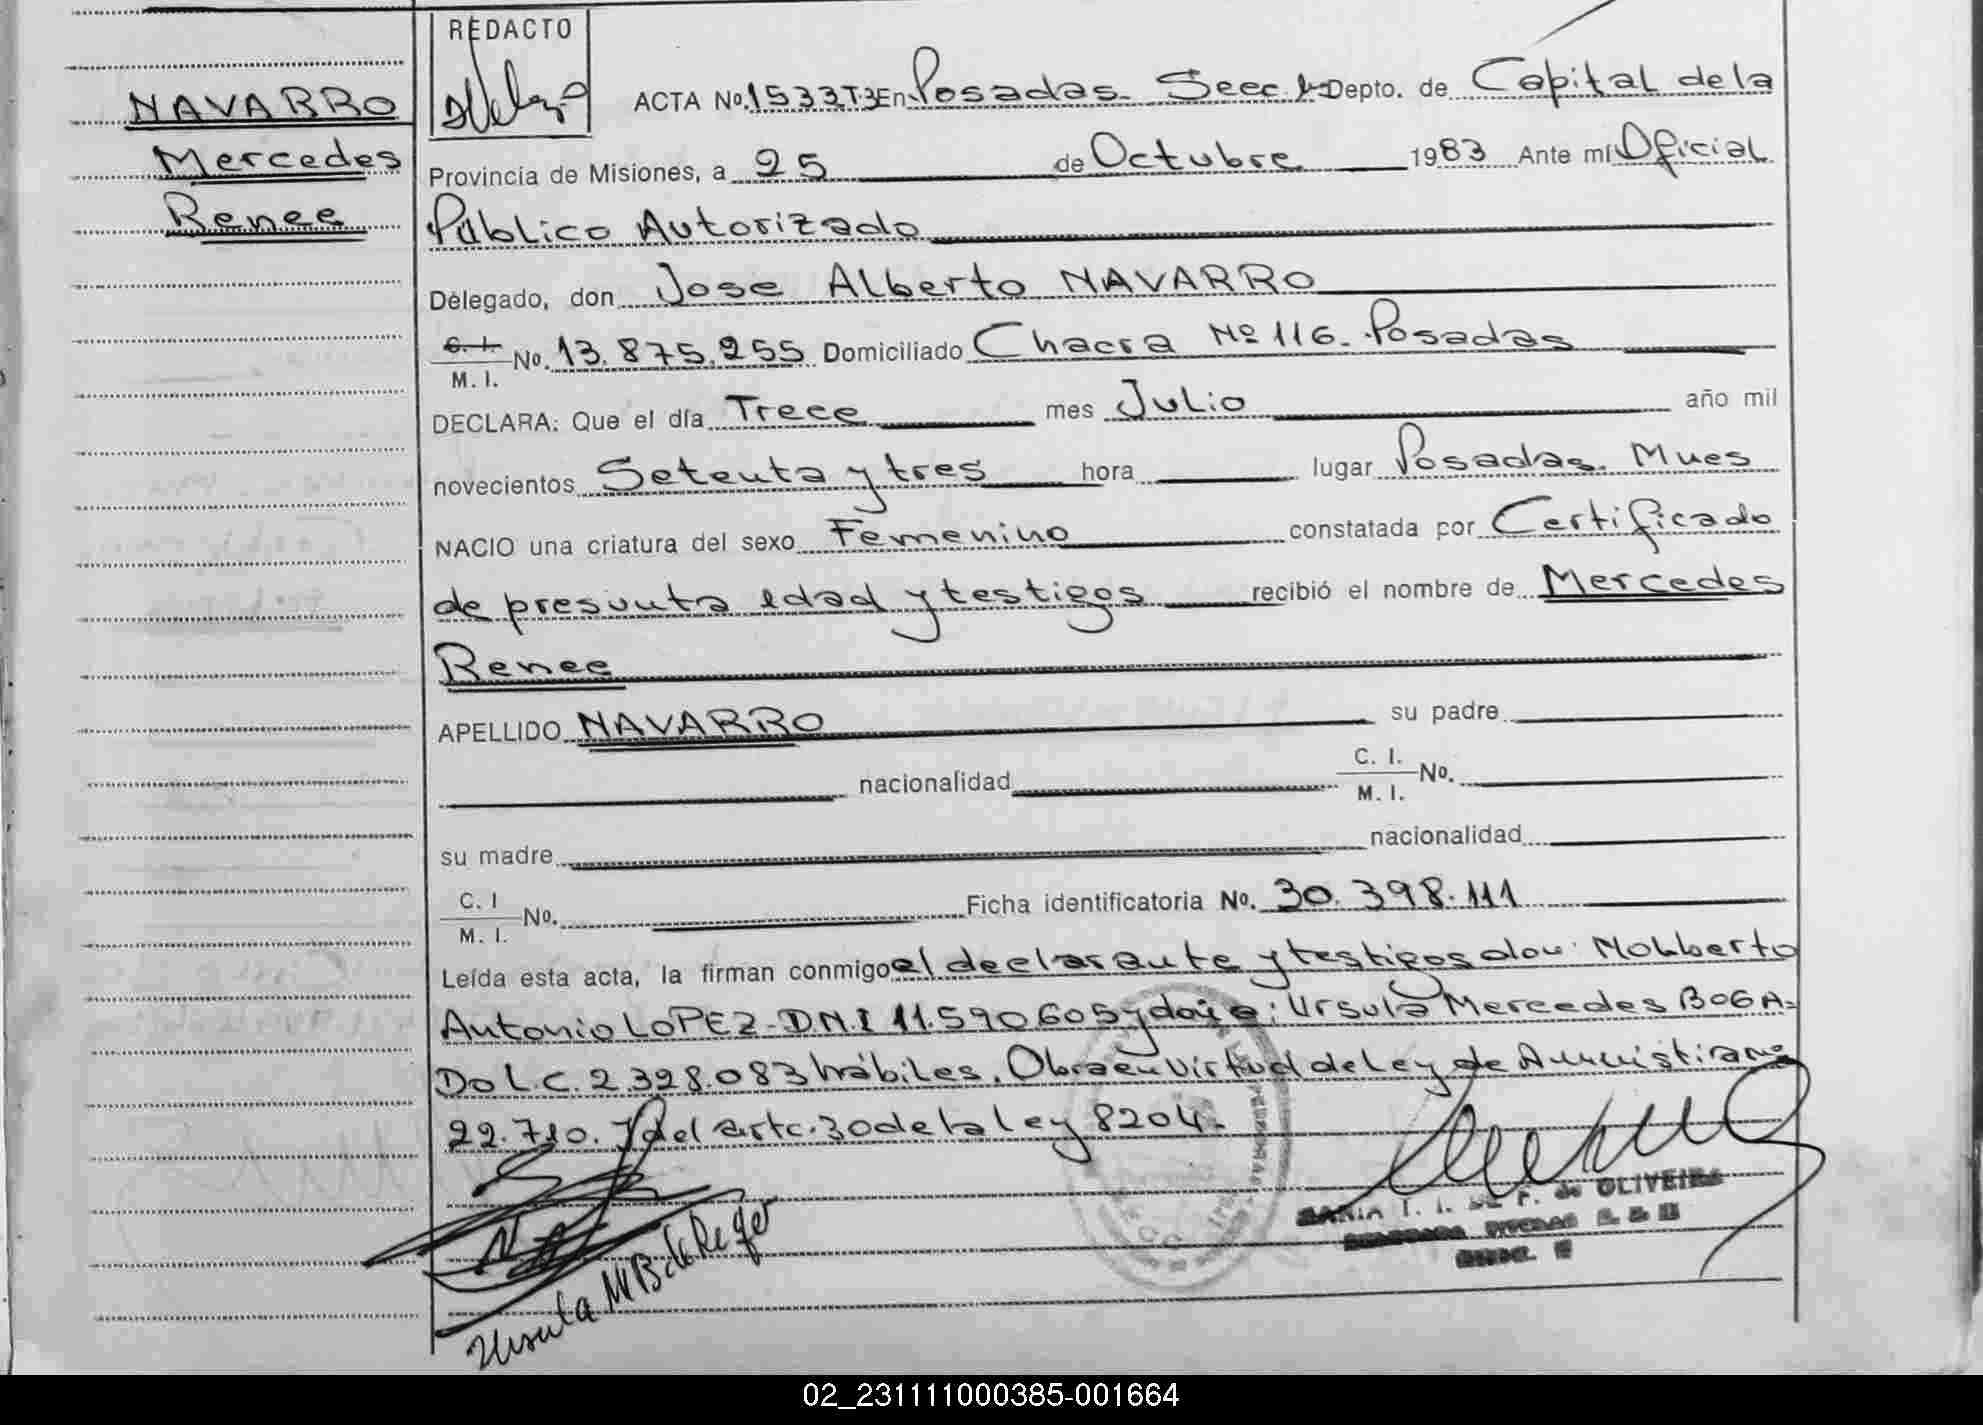 REDACTO
NAVARRO
Mercedes
Renee
ACTA No. 1533T3 En Posadas. Secc. 1- Depto. de Capital de la
Provincia de Misiones, a 25 de Octubre 1983 Ante mí Oficial
Público Autorizado
Delegado, don Jose Alberto NAVARRO
C. I. M. I. No. 13.875.255 Domiciliado Chacra Nº 116. Posadas
DECLARA: Que el día Trece mes Julio año mil
novecientos Setenta y tres hora lugar Posadas. Mnes
NACIO una criatura del sexo Femenino constatada por Certificado
de presunta edad y testigos recibió el nombre de Mercedes
Renee
APELLIDO NAVARRO su padre
nacionalidad C. I. M. I. No.
su madre nacionalidad
C. I M. I. No. Ficha identificatoria No. 30.398.111
Leída esta acta, la firman conmigo el declarante y testigos don: Norberto
Antonio LOPEZ-D.N.I 11.590605 y doña: Ursula Mercedes BOGA-
Do L.C. 2.328.083 hábiles. Obra en virtud de Ley de Amnistia
22.710. y del artc. 30 de la ley 8204.
Ursula M B de
de OLIVEIRA
02_231111000385-001664